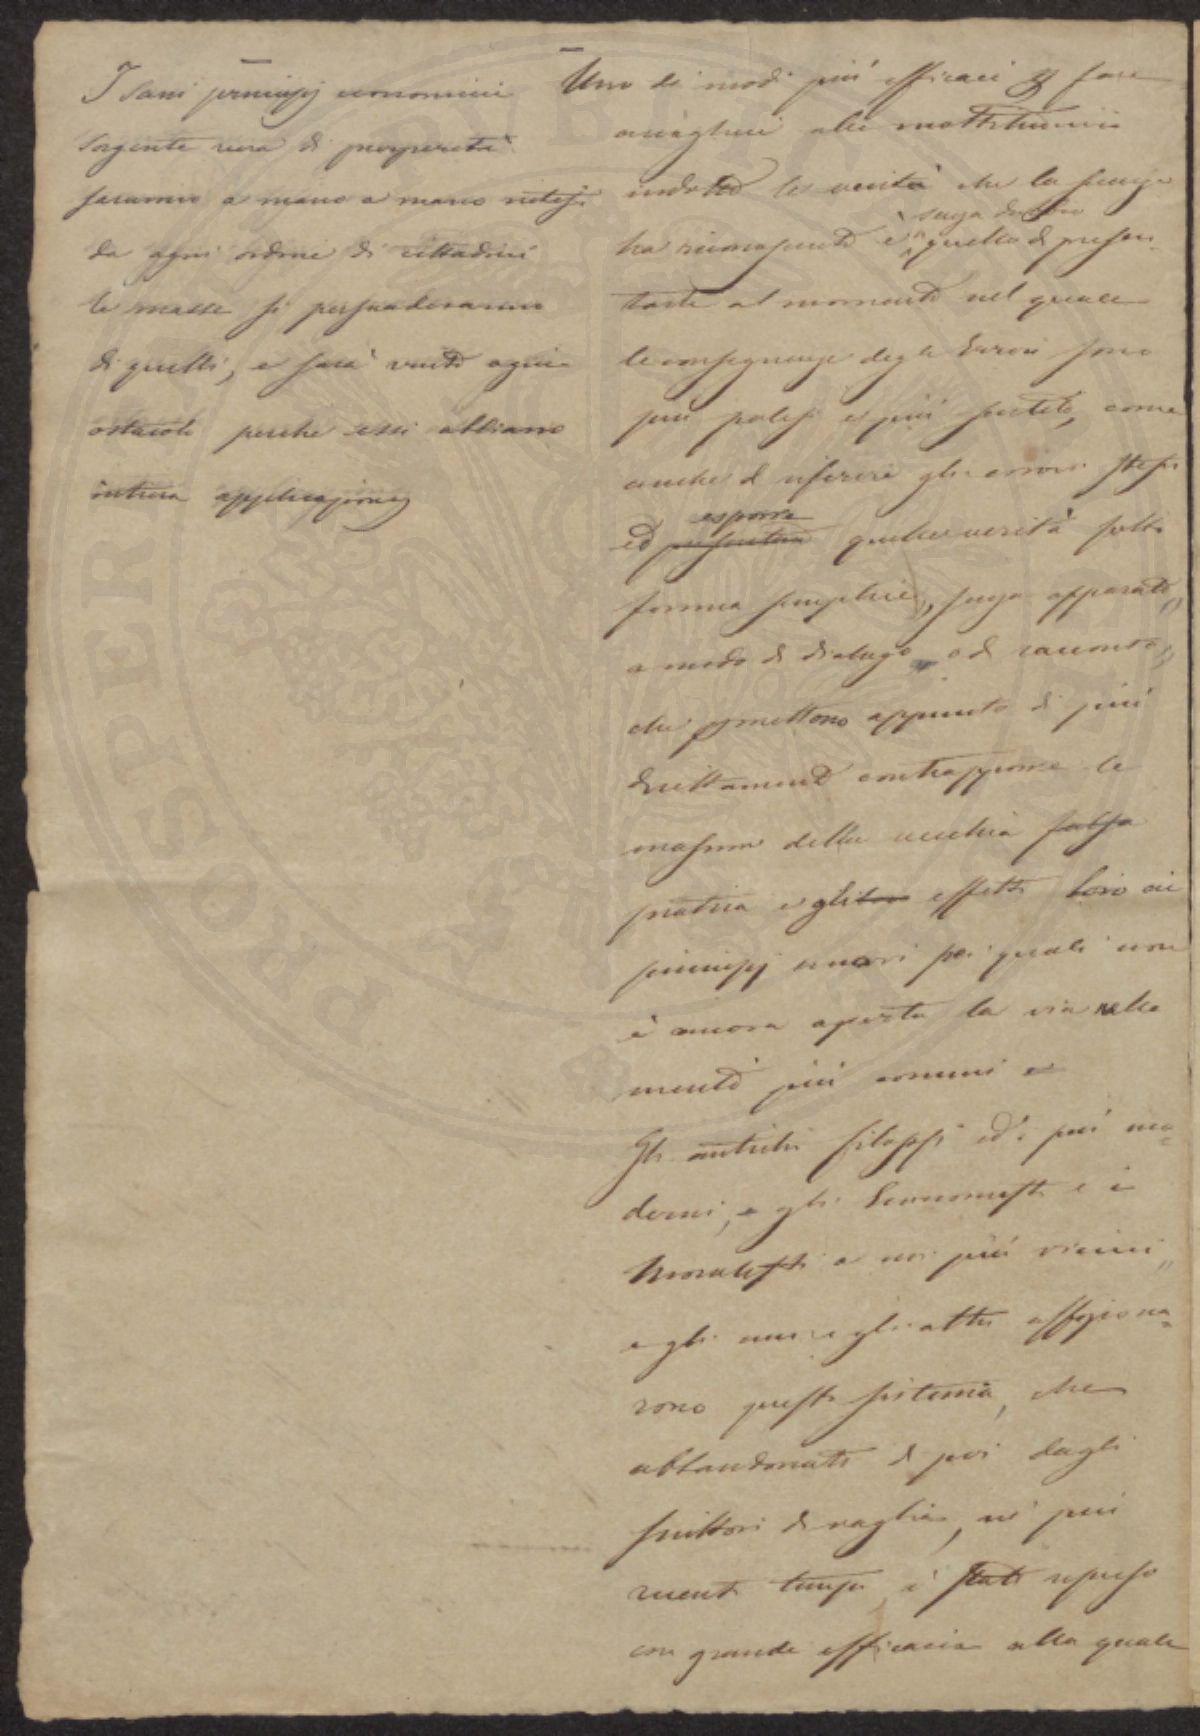 I sani principj economici
sorgente vera di prosperità
saranno a mano a mano intesi
da ogni ordine di cittadini
le masse si persuaderanno
di quelli, e sarà vinto ogni
ostacolo perche essi abbiano
intiera applicazione
Uno di modi più efficaci di fare
accogliere alla moltitudine
indotta le verità che la scienza
ha riconosciute è senza dubbio quello di presen-
tarle al momento nel quale
le conseguenze degli Errori sono
più palesi e più sentite, come
anche di riferire gli errori stessi
ed presentare esporre quelle verità sotto
forma semplice, senza apparato,
a modo di dialogo o di racconto,
che permettono appunto di più
direttamente contrapporre le
massime della vecchia falsa
pratica e gli loro effetti loro ai
principj nuovi pei quali non
è ancora aperta la via nelle
menti più comuni e
Gli antichi filosofi ed i più mo-
derni, e gli Economisti e i
Moralisti a noi più vicini,
e gli uni e gli altri
rono questo sistema, che
abbandonato di poi dagli
scrittori di vaglia, nei più
recenti tempi è stato ripreso
con grande efficacia alla quale
PROSPERITÀ PUBLICA